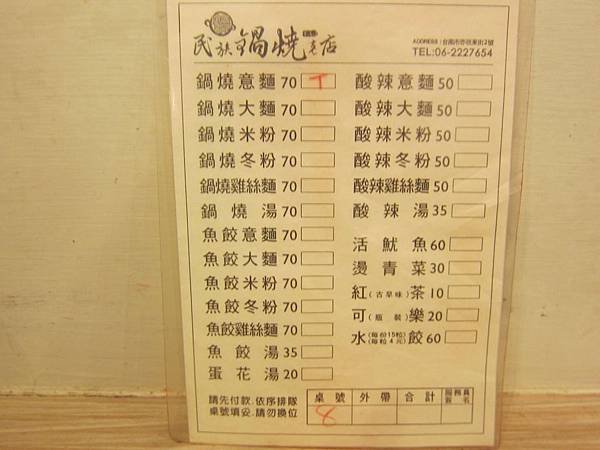 民族鍋燒老店
ADDRESS:台南市赤崁東街2號
TEL:06-2227654
鍋燒意麵 70
鍋燒大麵 70
鍋燒米粉 70
鍋燒冬粉 70
鍋燒雞絲麵 70
鍋燒湯 70
魚餃意麵 70
魚餃大麵 70
魚餃米粉 70
魚餃冬粉 70
魚餃雞絲麵 70
魚餃湯 35
蛋花湯 20
酸辣意麵 50
酸辣大麵 50
酸辣米粉 50
酸辣冬粉 50
酸辣雞絲麵 50
酸辣湯 35
活魷魚 60
燙青菜 30
紅(古早味)茶 10
可(瓶裝)樂 20
水(每份15粒)(每粒4元)餃 60
請先付款.依序排隊
桌號填妥.請勿換位
桌號 外帶 合計 服務員簽名
8